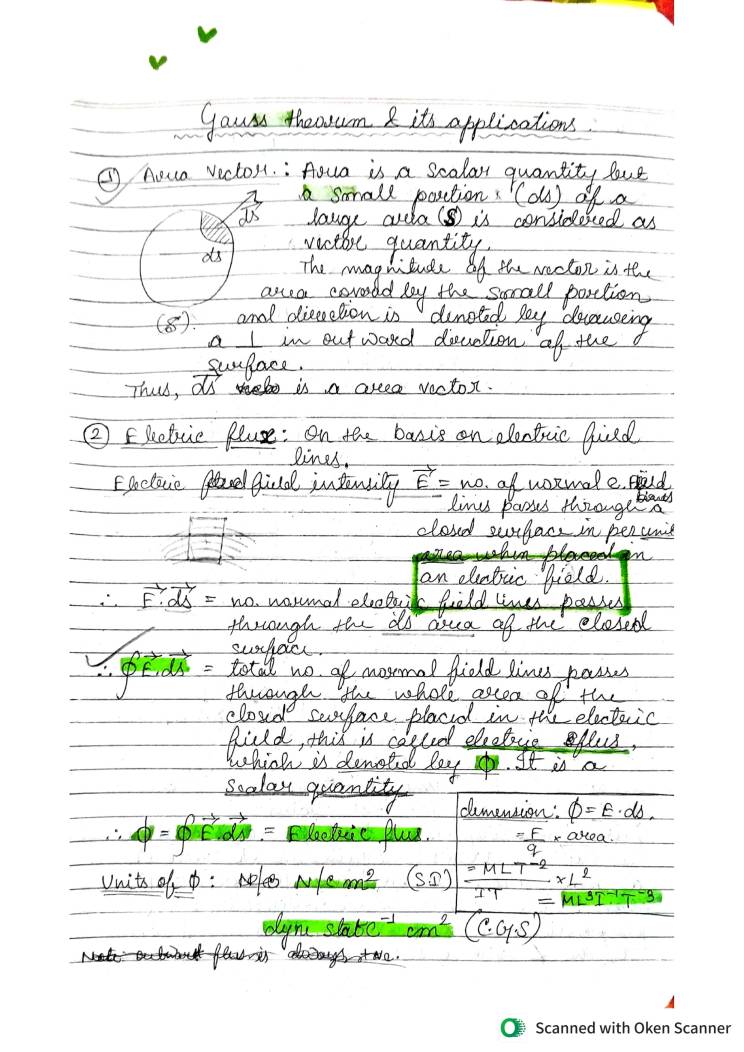 Gauss theorum & its applications.
① Area vector.: Area is a scalar quantity but
a small portion (ds) of a
large area (S) is considered as
vector quantity.
The magnitude of the vector is the
area covered by the small portion
and direction is denoted by drawing
a ⊥ in outward direction of the
surface.
ds
ds
(S).
Thus, ds is a area vector.
② Electric flux: On the basis on electric field
lines.
Electric field intensity E = no. of normal e. field
lines passes through a
closed surface in per unit
area when placed in
an electric field.
∴ E.ds = no. normal electric field lines passes
through the ds area of the closed
surface.
∴ ∮E.ds = total no. of normal field lines passes
through the whole area of the
closed surface placed in the electric
field, this is called electric flux,
which is denoted by ϕ. It is a
scalar quantity
∴ ϕ = ∮E.ds = Electric flux.
Units of ϕ: N/c m² (SI)
dyne statC⁻¹ cm² (C.G.S)
dimension: ϕ = E.ds.
= F/q × area.
= MLT⁻²/IT × L²
= ML³I⁻¹T⁻³
Note outward flux is always +ve.
Scanned with Oken Scanner